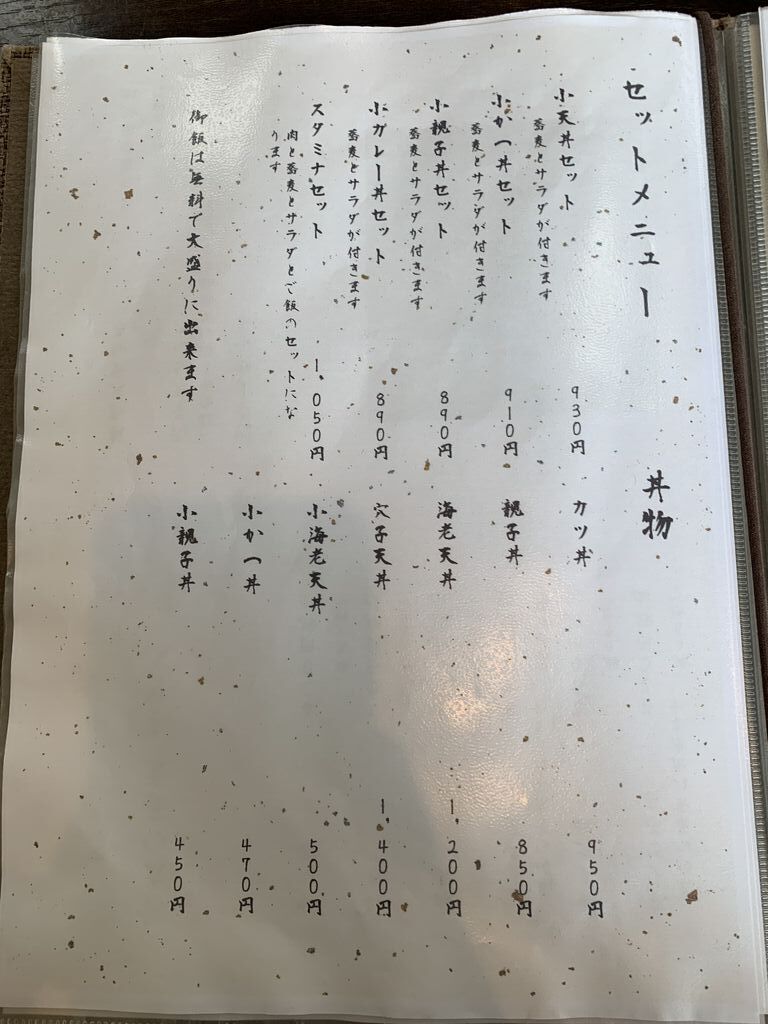 セットメニュー
小天丼セット 930円
蕎麦とサラダが付きます
小かつ丼セット 910円
蕎麦とサラダが付きます
小親子丼セット 890円
蕎麦とサラダが付きます
小カレー丼セット 890円
蕎麦とサラダが付きます
スタミナセット 1,050円
肉と蕎麦とサラダとご飯のセットにな
ります
御飯は無料で大盛りに出来ます
丼物
カツ丼 950円
親子丼 850円
海老天丼 1,200円
穴子天丼 1,400円
小海老天丼 500円
小かつ丼 470円
小親子丼 450円